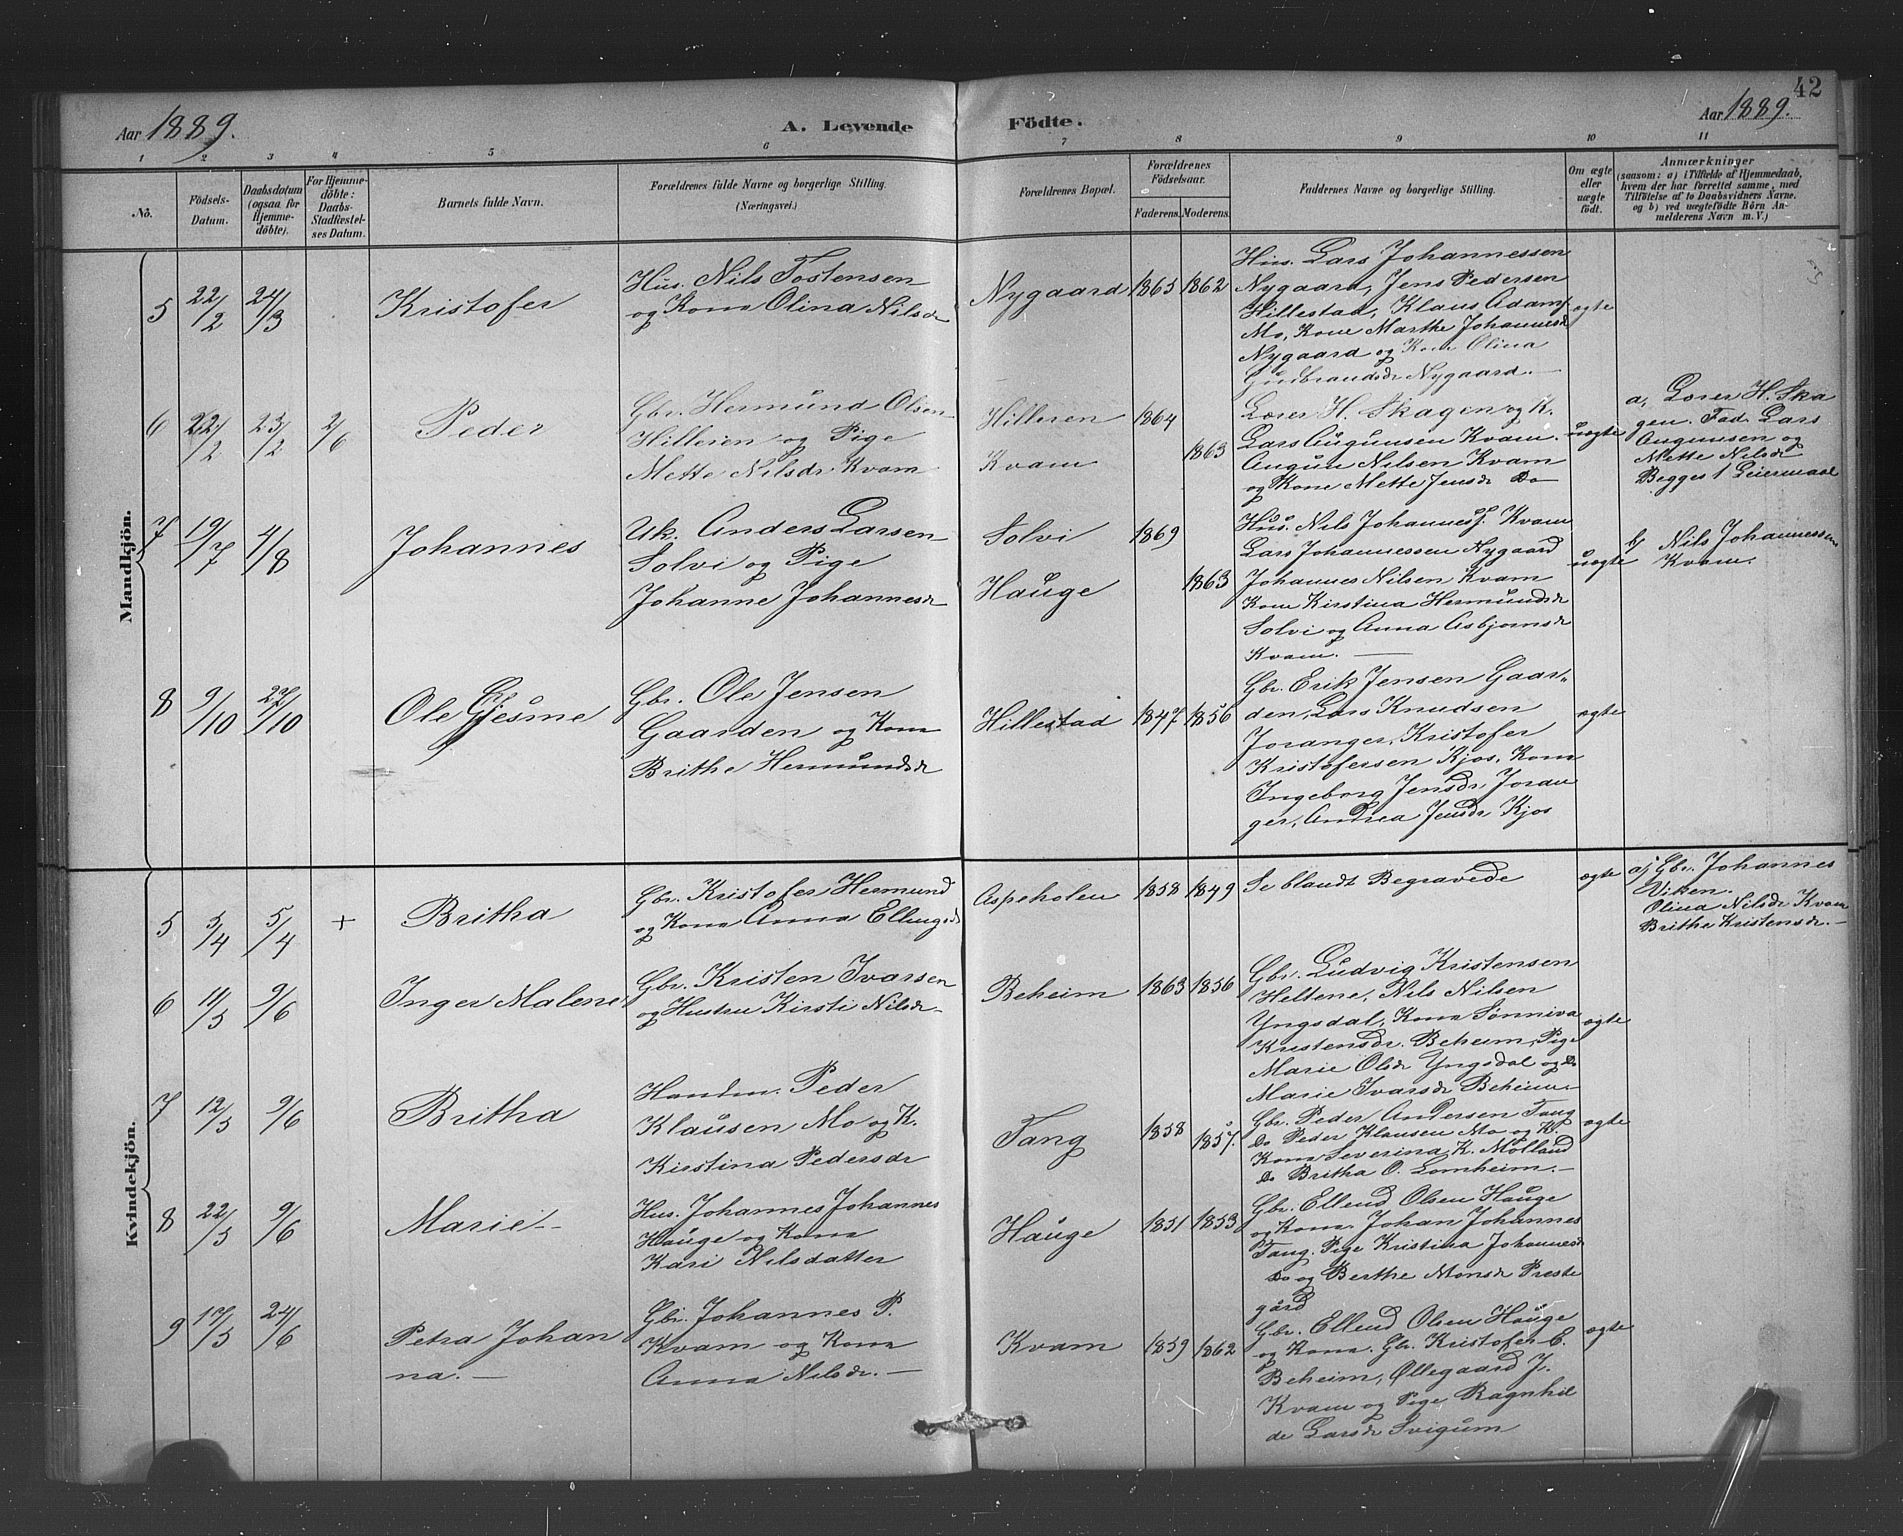 42
Aar 1889.
A. Levende Födte.
Aar 1889.
1 2 3 4 5 6 7 8 9 10 11
No.
Födsels-
Datum.
Daabsdatum
(ogsaa for
Hjemme-
döbte).
For Hjemme-
döbte:
Daabs-
Stadfæstel-
ses Datum.
Barnets fulde Navn.
Forældrenes fulde Navne og borgerlige Stilling.
(Næringsvei.)
Forældrenes Bopæl.
Forældrenes
Födselsaar.
Faderens. Moderens.
Faddernes Navne og borgerlige Stilling.
Om ægte
eller
uægte
födt.
Anmærkninger
(saasom: a) i Tilfælde af Hjemmedaab,
hvem der har forrettet samme, med
Tilföielse af to Daabsvidners Navne.
og b) ved uægtefödte Börn An-
melderens Navn m. V.)
Mandkjön.
5 22/2 24/3
Kristofer
Hus. Nils Tostensen
og Kona Olina Nilsdr
Nygaard 1865 1862
Hus. Lars Johannessen
Nygaard, Jens Pedersen
Hillestad, Klaus Adams.
Mo, Kone Marthe Johannesdr
Nygaard og Kone Olina
Gudbrandsdr Nygaard. —
ægte
6 22/2 23/2 2/6
Peder
Gbr. Hermund Olsen
Hilleren og Pige
Mette Nilsdr Kvam
Hilleren 1864
Kvam 1863
Lærer H. Skagen og K.
Lars Augunsen Kvam.
Augun Nilsen Kvam
og Kone Mette Jensdr Do
uægte
a, Lærer H. Ska
gen. Fad. Lars
Augunsen og
Mette Nilsdr
Begges 1 Leiermaal
7 19/7 4/8
Johannes
Uk. Anders Larsen
Solvi og Pige
Johanne Johannesdr
Solvi 1869
Hauge 1863
Hus. Nils Johannesf. Kvam
Lars Johannessen Nygaard
Johannes Nilsen Kvam
Kone Kirstina Hermundsdr
Solvi og Anna Asbjørnsdr
Kvam. —
uægte
b, Nils Johannessen
Kvam.
8 9/10 27/10
Ole Gjesme
Gbr. Ole Jensen
Gaarden og Kona
Brithe Hermundsdr
Hillestad 1847 1856
Gbr. Erik Jensen Gaar-
den, Lars Knudsen
Joranger, Kristofer
Kristofersen Kjos, Kona
Ingeborg Jensdr Joran
ger, Andrea Jensdr Kjos
ægte
Kvindekjön.
5 5/4 5/4 +
Britha
Gbr. Kristofer Hermund
og Kona Anna Ellingsdr
Aspeholen 1858 1849
Se blandt Begravede
ægte
a, Gbr. Johannes
Viken.
Olina Nilsdr Kvam
Brithe Kristensdr. —
6 11/5 9/6
Inger Malene
Gbr. Kristen Ivarsen
og Hustru Kirsti Nilsdr
Beheim 1863 1856
Gbr. Ludvig Kristensen
Heltene, Nils Nilsen
Yngsdal, Kona Sønniva
Kristensdr. Beheim, Pige
Marie Olsdr Yngsdal og Do
Marie Ivarsdr Beheim
ægte
7 12/5 9/6
Britha
Handm. Peder
Klausen Mo og K.
Kirstina Pedersdr
Tang 1858 1857.
Gbr. Peder Andersen Tang
Do Peder Klausen Mo og K.
Kona Severina K. Molland
Do Britha O. Lomheim. —
ægte
8 22/5 9/6
Marie —
Hus. Johannes Johannes
Hauge og Kona
Kari Nilsdatter
Hauge 1851 1853
Gbr. Ellend Olsen Hauge
og Kona. Johan Johannes
Tang. Pige Kristina Johannesdr
Do og Berthe Monsdr Preste
gård
9 17/5 24/6
Petra Johan
na. —
Gbr. Johannes P.
Kvam og Kona
Anna Nilsdr. —
Kvam 1859 1862
Gbr. Ellend Olsen Hauge
og Kona. Gbr. Kristofer E.
Beheim, Øllegaard J.
Kvam og Pige Ragnhil
de Larsdr Svigum
ægte